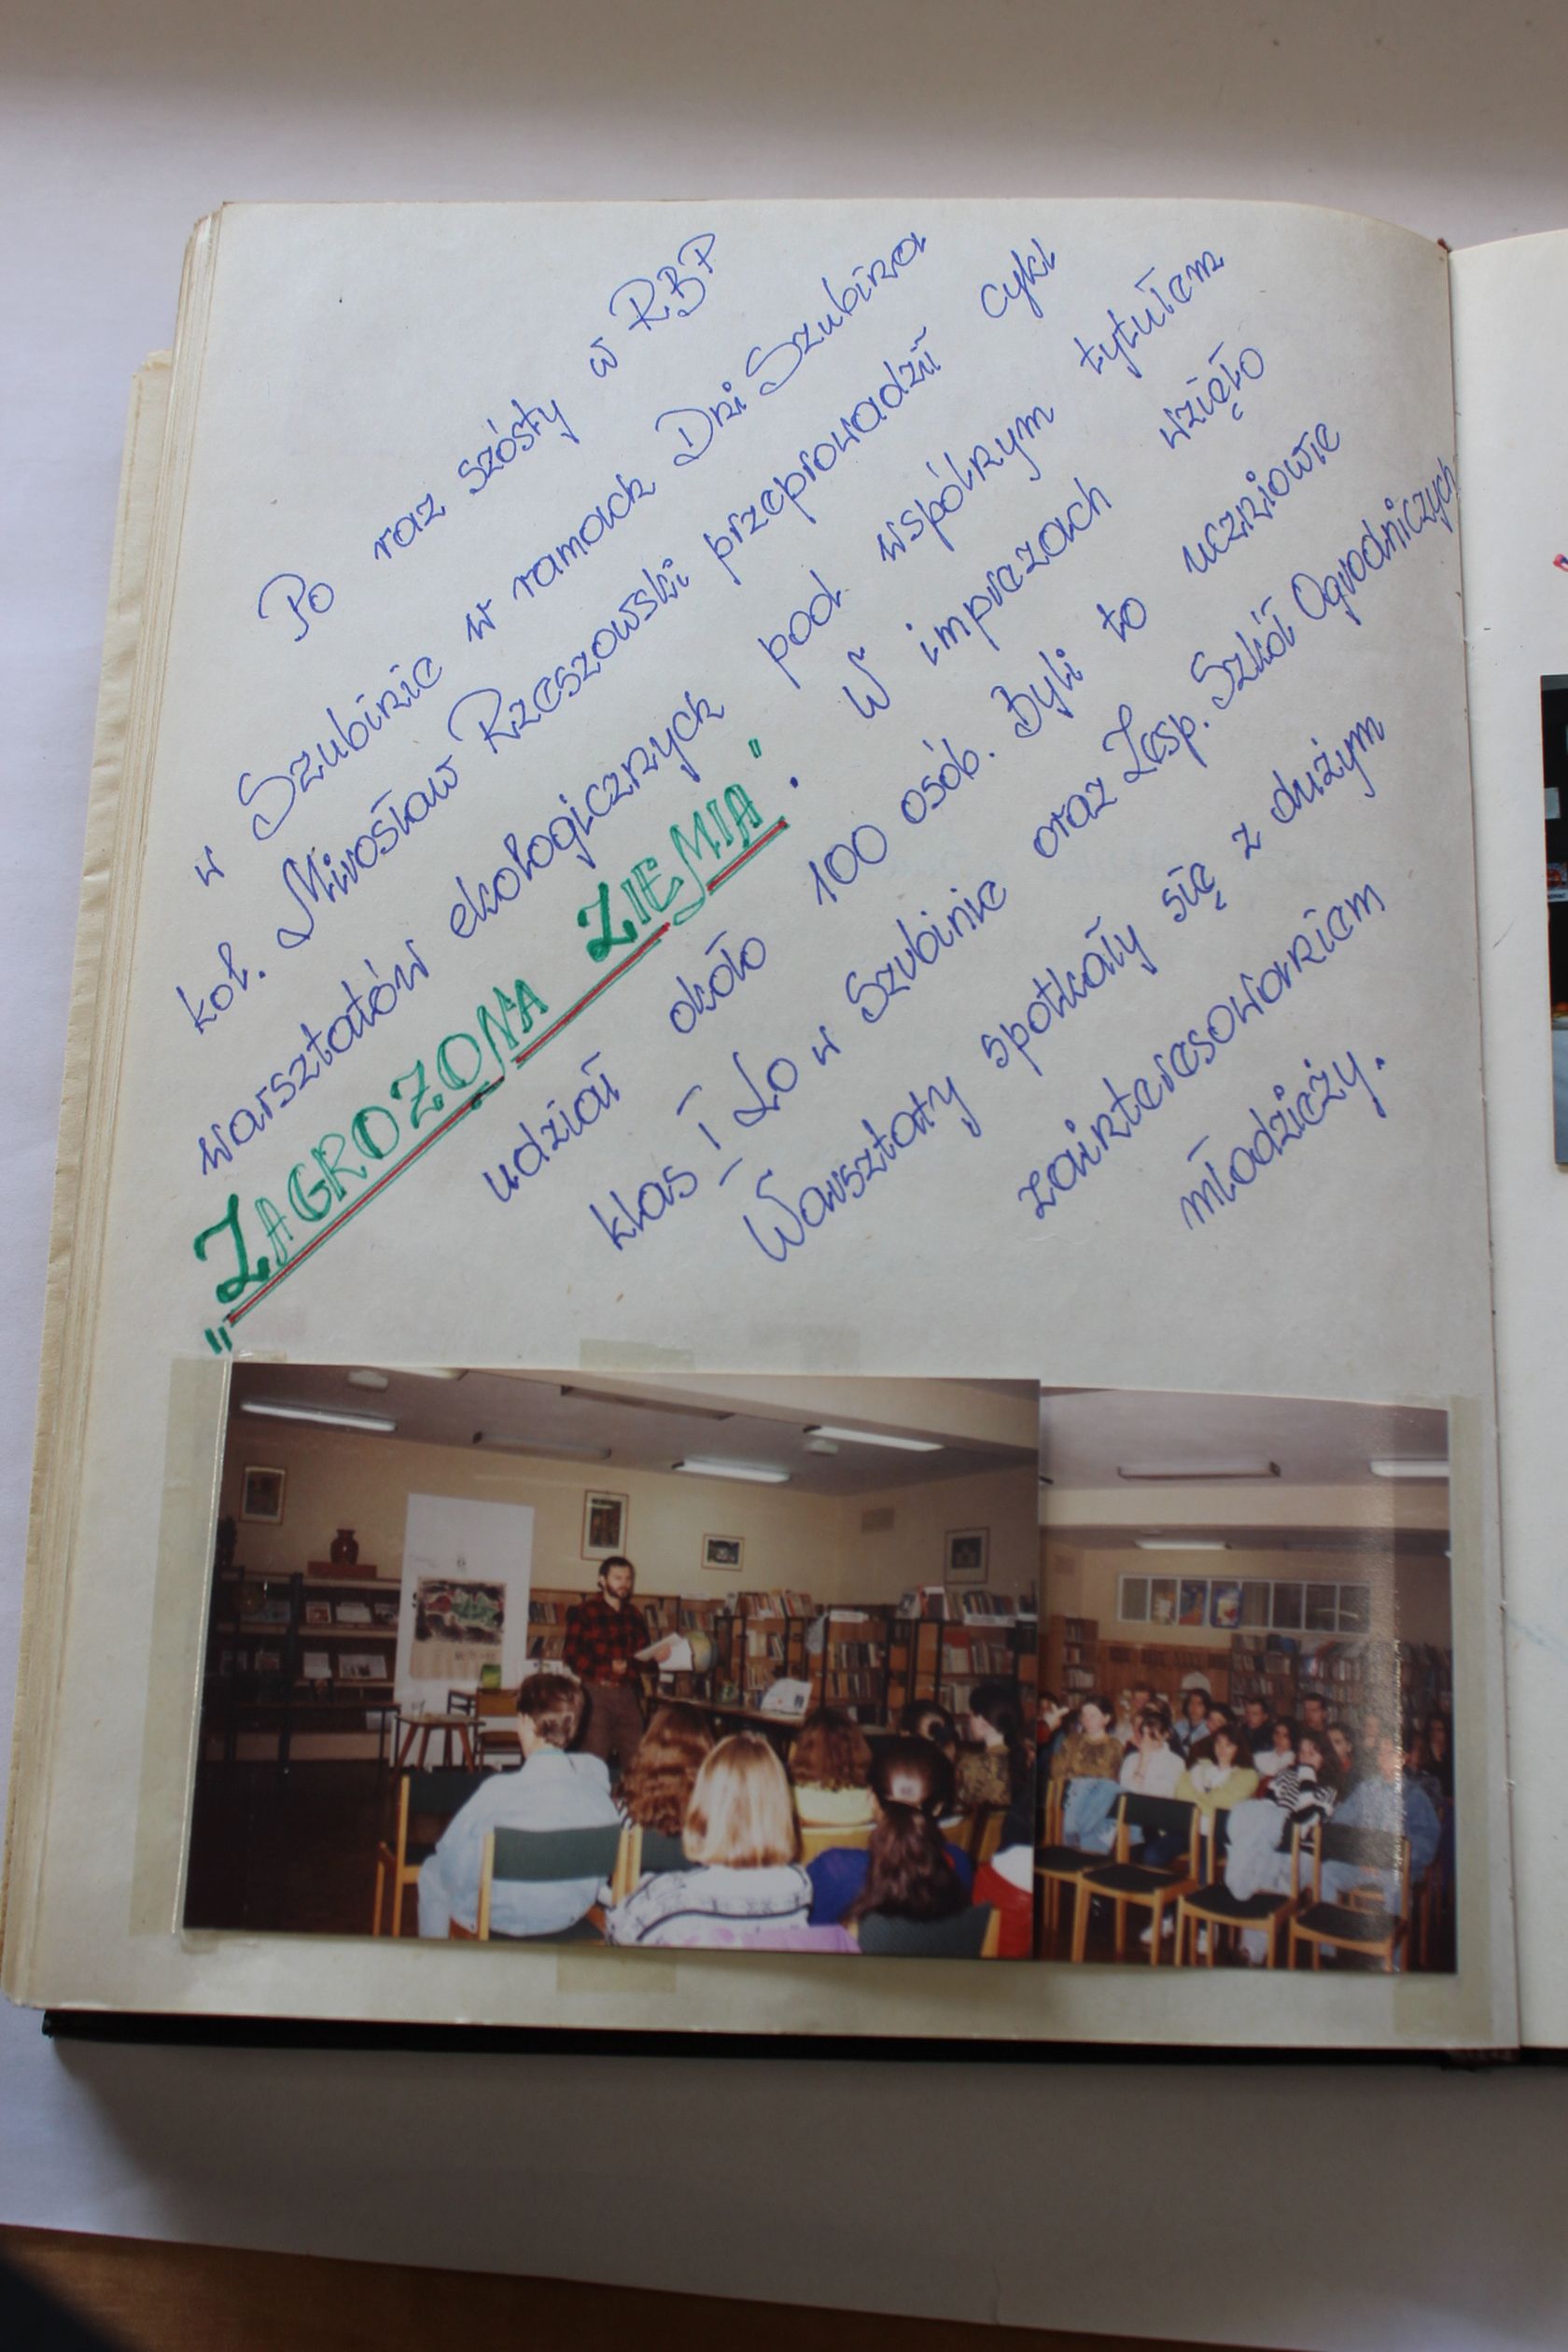 Po raz szósty w RBP
w Szubinie w ramach Dni Szubina
kol. Mirosław Rzeszowski przeprowadził cykl
warsztatów ekologicznych pod wspólnym tytułem
"ZAGROŻONA ZIEMIA". W imprezach wzięło
udział około 100 osób. Byli to uczniowie
klas I LO w Szubinie oraz Zesp. Szkół Ogrodniczych
Warsztaty spotkały się z dużym
zainteresowaniem
młodzieży.